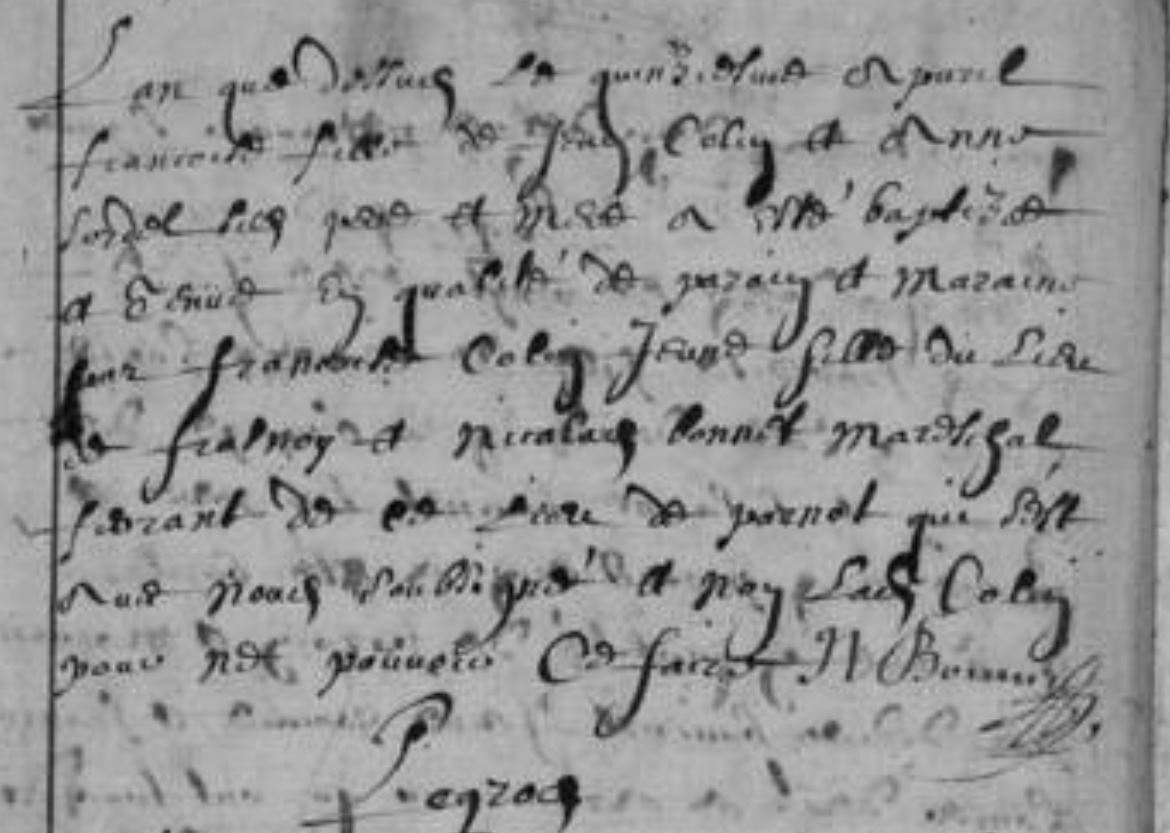 L'an que dessus le quinziesme Apvril
francoise fille de Jean Colin et Anne
sordel ses pere et mere a esté baptizée
et tenue en qualité de parain et maraine
par francoise Colin Jeune fille du Lieu
de fresnoy et nicolas bonnet mareschal
ferrant de ce Lieu de parnot qui s'est
avec nous soubsigné et non Lad Colin
pour ne pouvoir Ce faire N Bonnet
Legros